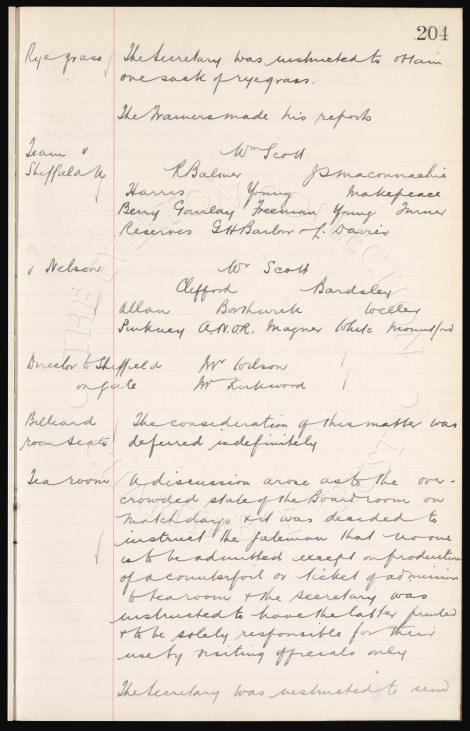 204
Rye grass The Secretary was instructed to obtain
one sack of ryegrass.
The Trainers made his reports
Team v Wm Scott
Sheffield U R Balmer J S Maconnachie
Harris Young Makepeace
Berry Gourlay Freeman Young Turner
Reserves G H Barlow & L. Davies
v Nelson Wm Scott
Clifford Bardsley
Allan Borthwick Welley
Pinkney A.N.OR. Magner White Mountford
Director to Sheffield Mr Wilson
on gate Mr Kirkwood
Billiard The consideration of this matter was
room seats deferred indefinitely
Tea room A discussion arose as to the over-
crowded state of the Board room on
Match days & it was decided to
instruct the gateman that no one
is to be admitted except on production
of a counterfoil or ticket of admission
to tearoom & the Secretary was
instructed to have the latter printed
& to be solely responsible for their
use by visiting officials only
The Secretary was instructed to send
THE EVERTON COLLECTION